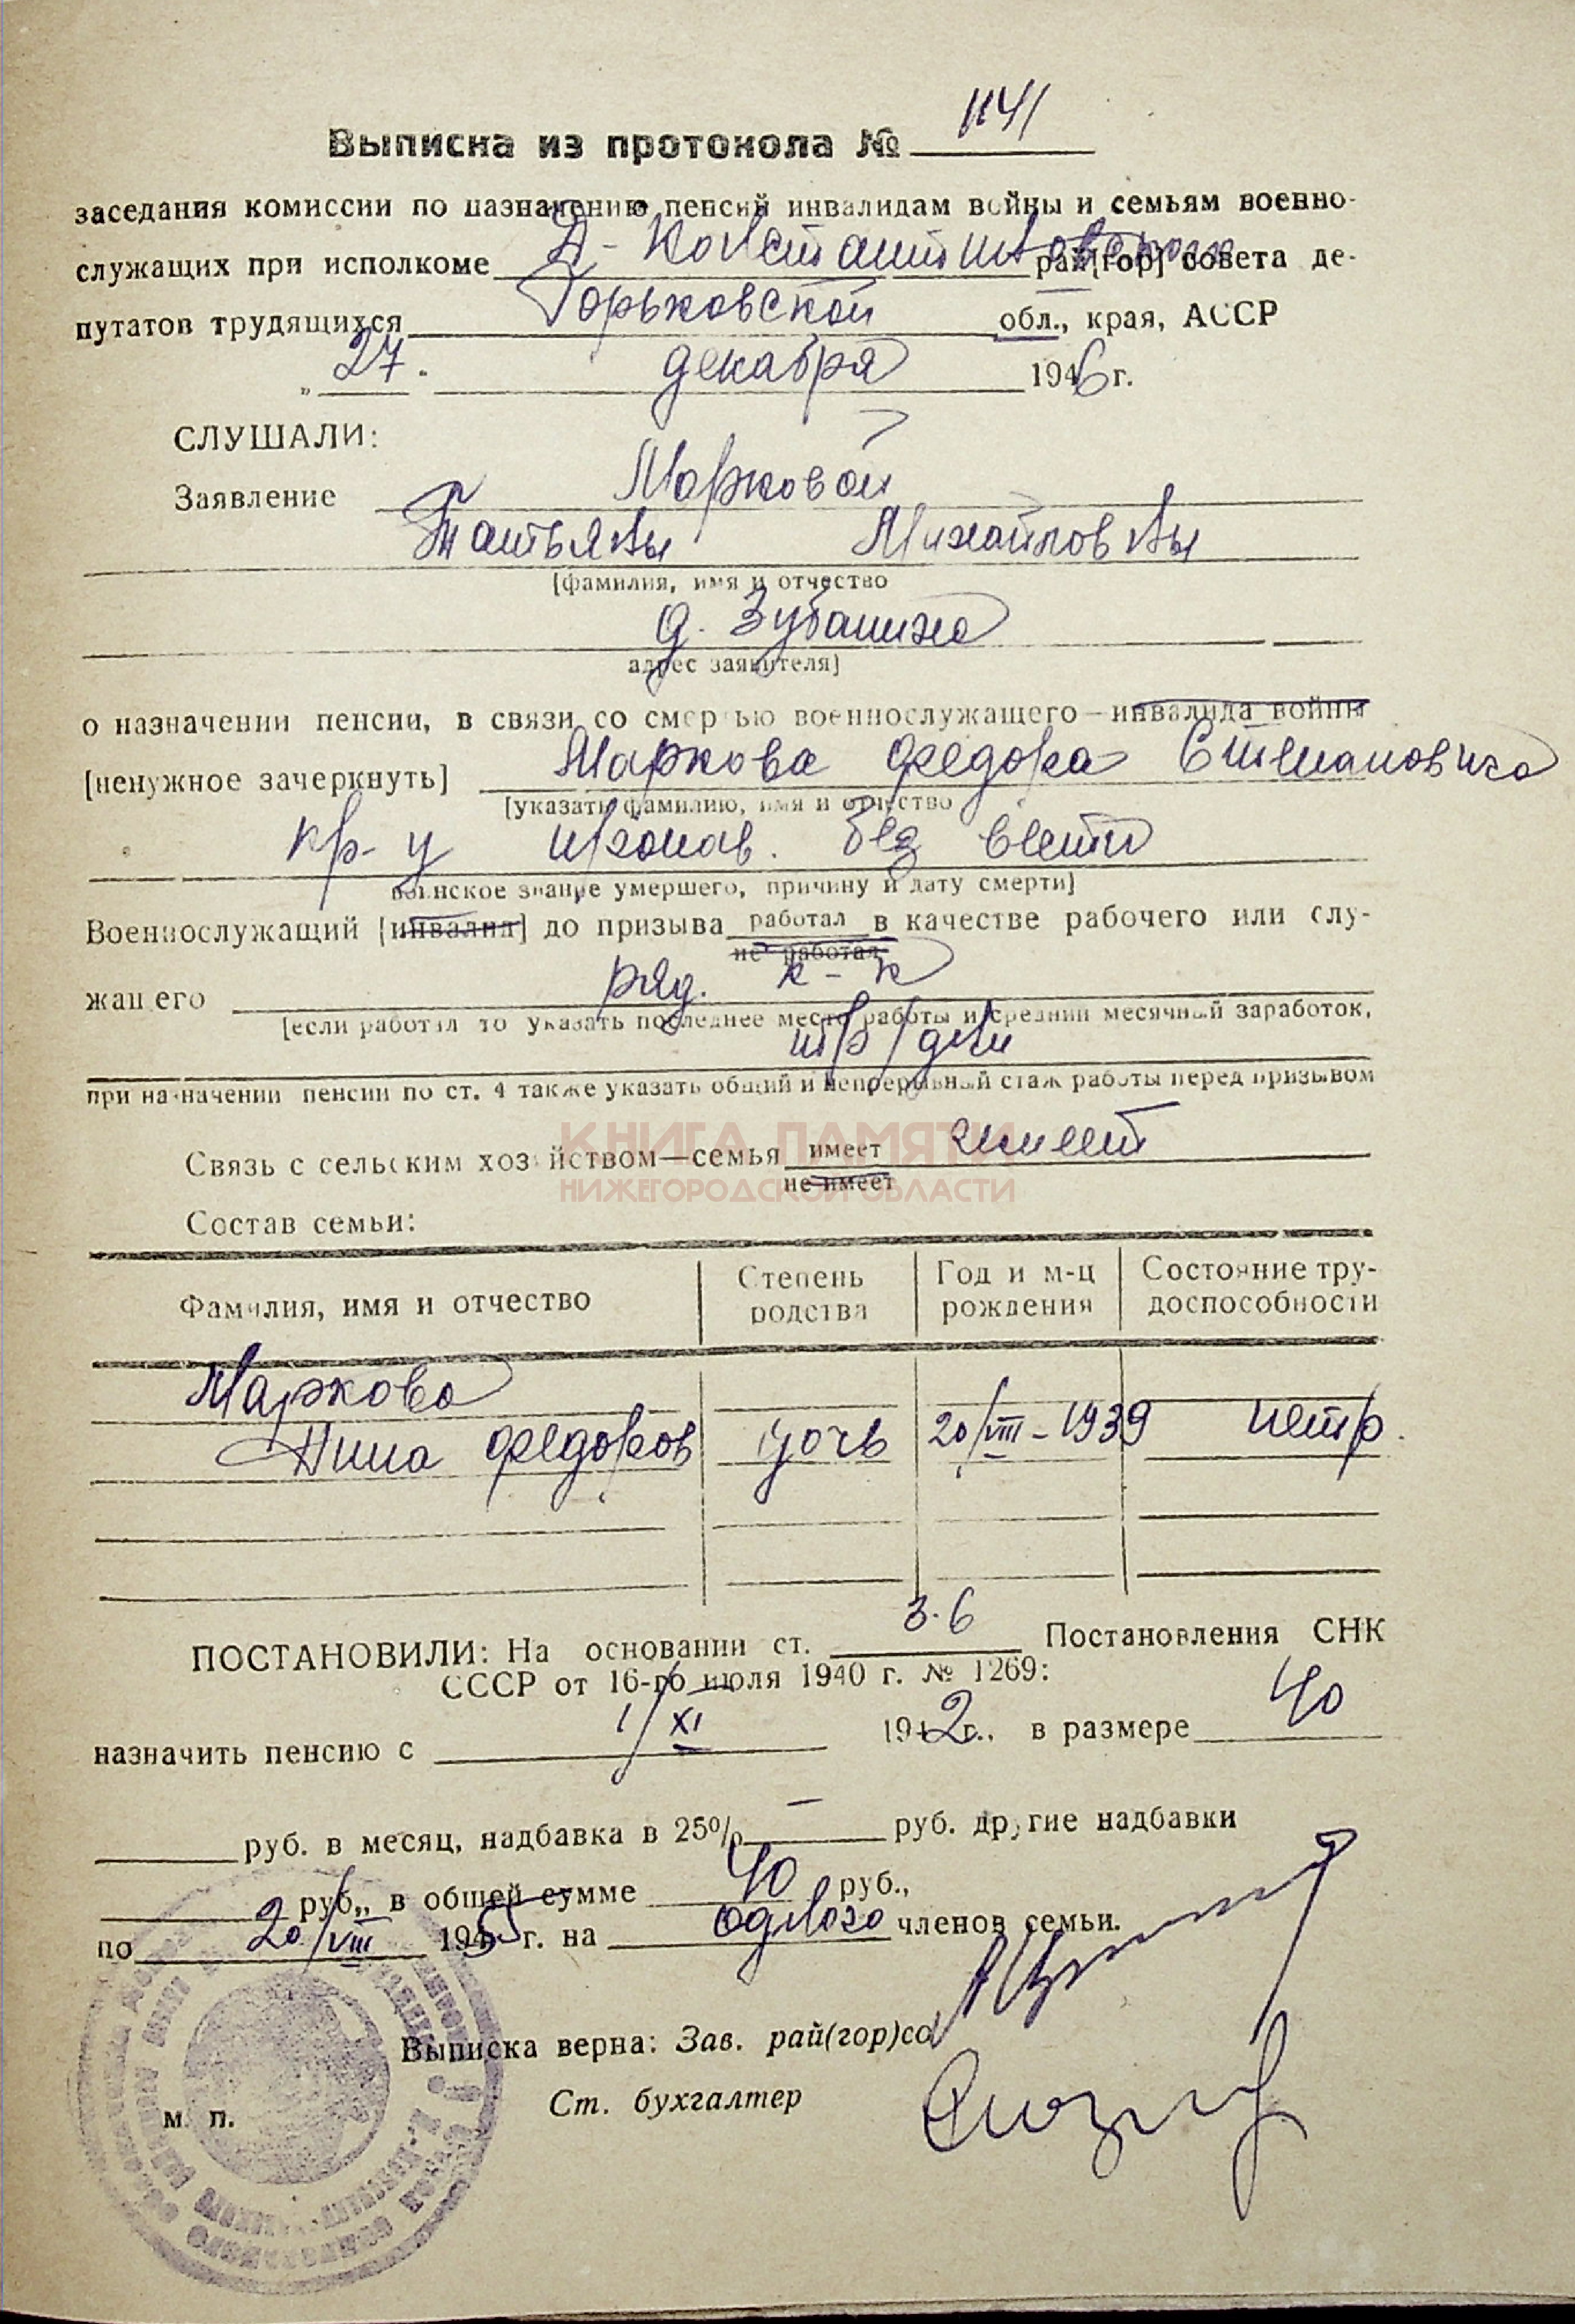 Выписка из протокола № 1141
заседания комиссии по назначению пенсий инвалидам войны и семьям военно-
служащих при исполкоме Д-Константиновском рай[гор] совета де-
путатов трудящихся Горьковской обл., края, АССР
„ 27. " декабря 1946 г.
СЛУШАЛИ:
Заявление Марковой
Татьяны Михайловны
[фамилия, имя и отчество
д. Зубаниха
адрес заявителя]
о назначении пенсии, в связи со смертью военнослужащего—инвалида войны
[ненужное зачеркнуть] Маркова Федора Степановича
[указать фамилию, имя и отчество
кр-ц пропав. без вести
воинское звание умершего, причину и дату смерти]
Военнослужащий [инвалид] до призыва работал в качестве рабочего или слу-
не работал
жащего ряд. к-к
[если работал то указать последнее место работы и средний месячный заработок,
тр/дни
при назначении пенсии по ст. 4 также указать общий и непрерывный стаж работы перед призывом
КНИГА ПАМЯТИ
Связь с сельским хозяйством—семья имеет имеет
не имеет
НИЖЕГОРОДСКОЙ ОБЛАСТИ
Состав семьи:
Фамилия, имя и отчество Степень родства Год и м-ц рождения Состояние тру-доспособности
Маркова
Нина Федоров дочь 20/VIII-1939 нетр.
ПОСТАНОВИЛИ: На основании ст. 3.6 Постановления СНК
СССР от 16-го июля 1940 г. № 1269:
назначить пенсию с 1/XI 1942 г., в размере 40
руб. в месяц, надбавка в 25% — руб. другие надбавки
руб., в общей сумме 40 руб.,
по 20/VIII 1955 г. на одного членов семьи.
Выписка верна: Зав. рай(гор)со
Ст. бухгалтер
м. п.